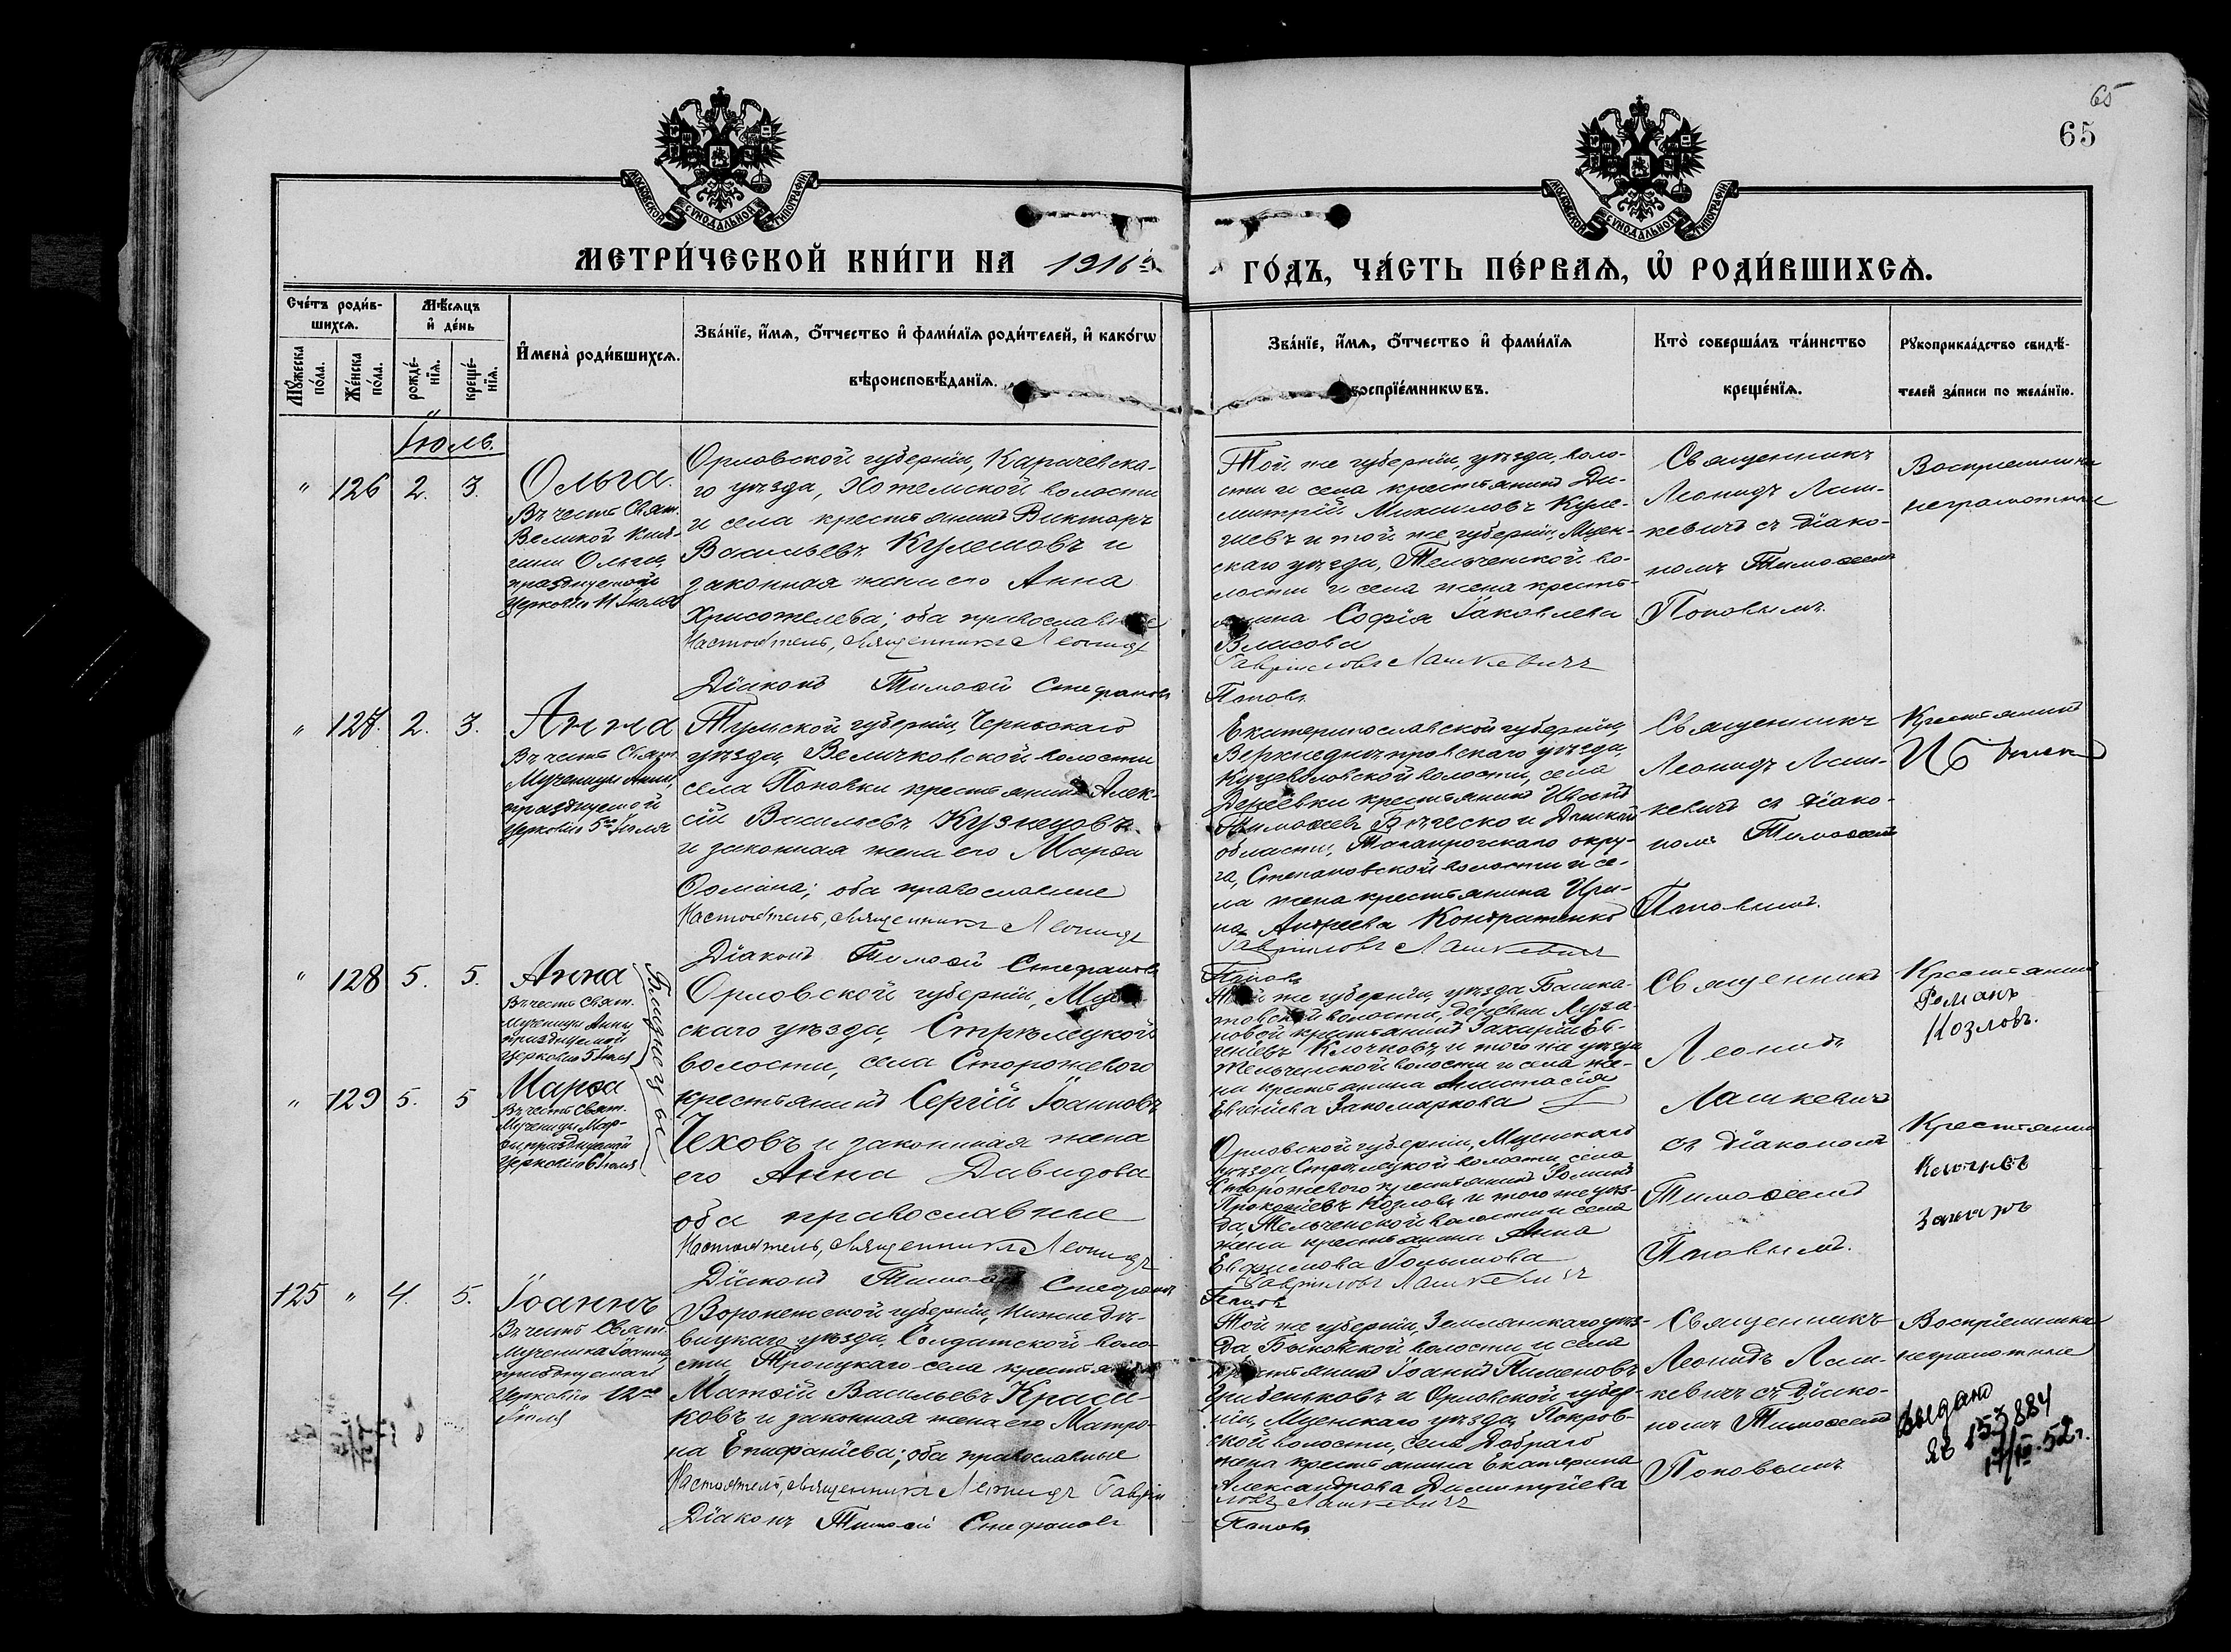 65
65
МОСКОВСКОЙ СѴНОДАЛЬНОЙ ТИПОГРАФІИ
МОСКОВСКОЙ СѴНОДАЛЬНОЙ ТИПОГРАФІИ
МЕТРИ́ЧЕСКОЙ КНИ́ГИ НА 1916й
ГО́ДЪ, ЧА́СТЬ ПЕ́РВАѦ, Ѡ҆ РОДИ́ВШИХСѦ.
Сче́тъ роди́в-
шихсѧ.
Мѣ́сѧцъ
и҆ де́нь
Мꙋ́жеска
по́ла.
Же́нска
по́ла.
рожде́-
нїѧ.
креще́-
нїѧ.
И҆мена̀ роди́вшихсѧ.
Зва́нїе, и҆́мѧ, ѻ҆́тчество и҆ фами́лїѧ роди́телей, и҆ како́гѡ
вѣроисповѣ́данїѧ.
Зва́нїе, и҆́мѧ, ѻ҆́тчество и҆ фами́лїѧ
воспрїе́мникѡвъ.
Кто̀ соверша́лъ та́инство
креще́нїѧ.
Рꙋкоприкла́дство свидѣ́-
телей за́писи по жела́нїю.
Іюль.
" 126 2. 3.
Ольга
Въ честь Свят.
Великой Кня-
гини Ольги,
празднуемой
Церковію 11 Іюля
Орловской губерніи, Карачевска-
го уѣзда, Хотемской волости
и села крестьянинъ Викторъ
Васильевъ Кулешовъ и
законная жена его Анна
Хрисотелева; оба православные
Настоятель, священникъ Леонидъ
Діаконъ Тимоѳей Стефановъ
Той же губерніи, уѣзда, воло-
сти и села крестьянинъ Ди-
митрій Михаиловъ Куле-
шевъ и той же губерніи, Мцен-
скаго уѣзда, Тельченской во-
лости и села жена кресть-
янина Софія Іаковлева
Власова
Гавріиловъ Лашкевичъ
Поповъ
Священникъ
Леонидъ Лаш-
кевичъ съ діако-
номъ Тимоѳеемъ
Поповымъ
Воспріемники
неграмотные
" 127. 2. 3.
Анна
Въ честь Свят.
Мученицы Анны,
празднуемой
Церковію 5го Іюля
Тульской губерніи, Чернскаго
уѣзда, Величковской волости
села Поповки крестьянинъ Алек-
сій Васильевъ Кузнецовъ
и законная жена его Марѳа
Ѳомина; оба православные
Настоятель, священникъ Леонидъ
Діаконъ Тимоѳей Стефановъ
Екатеринославской губерніи,
Верхнеднѣпровскаго уѣзда,
волости, села
крестьянинъ Иванъ
Тимоѳеевъ и Донской
области, Таганрогскаго окру-
га, Степановской волости и се-
ла жена крестьянина Ири-
на Андреева Кондратенко
Гавріиловъ Лашкевичъ
Поповъ
Священникъ
Леонидъ Лаш-
кевичъ съ діако-
номъ Тимоѳеемъ
Поповымъ.
Крестьянинъ
" 128 5. 5.
Анна
Въ честь Свят.
Мученицы Анны
празднуемой
Церковію 5 Іюля
Близнецы
" 129 5. 5
Марѳа
Въ честь Свят.
Мученицы Мар-
ѳы, празднуемой
Церковію 6 Іюля
Орловской губерніи, Мцен-
скаго уѣзда, Стрѣлецкой
волости, села Сторожевого
крестьянинъ Сергій Іоанновъ
Чеховъ и законная жена
его Анна Давидова
оба православные
Настоятель, священникъ Леонидъ
Діаконъ Тимоѳей Стефановъ
Той же губерніи, уѣзда Башка-
товской волости, деревни
крестьянинъ Захарій Ев-
геніевъ Клочковъ, и того же уѣзда
Тельченской волости и села же-
на крестьянина Анастасія
Закомаркова
Орловской губерніи, Мценскаго
уѣзда, Стрѣлецкой волости, села
Сторожевого крестьянинъ Романъ
Прокопіевъ Козловъ и того же уѣз-
да, Тельченской волости и села
жена крестьянина Анна
Евфимова
Гавріиловъ Лашкевичъ
Поповъ
Священникъ
Леонидъ
Лашкевичъ
съ діакономъ
Тимоѳеемъ
Поповымъ.
Крестьянинъ
Романъ
Козловъ.
Крестьянинъ
Захаръ
125 " 4. 5.
Іоаннъ
Въ честь Свят.
Мученика Іоанна,
празднуемаго
Церковію 12го
Іюля
Воронежской губерніи, Нижнедѣ-
вицкаго уѣзда, Солдатской воло-
сти, Троицкаго села крестьянинъ
Матѳій Васильевъ Краси-
ковъ и законная жена его Матро-
на Епифаніева; оба православные
Настоятель, священникъ Леонидъ Гавріи
Діаконъ Тимоѳей Стефановъ
Той же губерніи, Землянскаго уѣз-
да Быковской волости и села
крестьянинъ Іоаннъ Пименовъ
Грибеньковъ и Орловской губер-
ніи, Мценскаго уѣзда, Покров-
ской волости, села Добраго
жена крестьянина Екатерина
Александрова Димитріева
ловъ Лашкевичъ
Поповъ
Священникъ
Леонидъ Лаш-
кевичъ съ діако-
номъ Тимоѳеемъ
Поповымъ
Воспріемники
неграмотные
Выдано
яв 153884
52г.